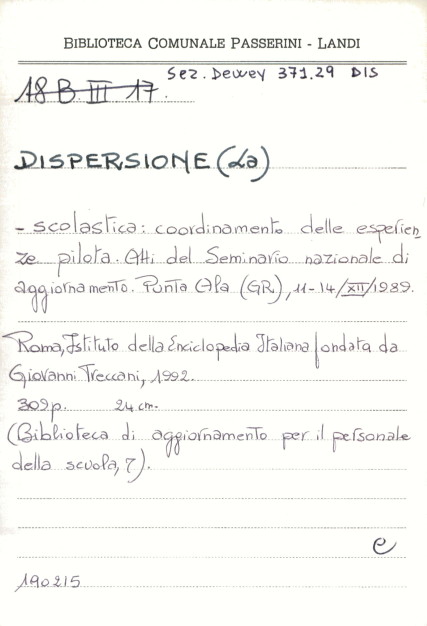 BIBLIOTECA COMUNALE PASSERINI - LANDI
Sez. Dewey 371.29 DIS
18 B III 17.
DISPERSIONE (La)
- scolastica: coordinamento delle esperien
ze pilota. Atti del Seminario nazionale di
aggiornamento. Punta Ala (GR), 11-14/XII/1989.
Roma, Istituto della Enciclopedia Italiana fondata da
Giovanni Treccani, 1992.
309 p. 24 cm.
(Biblioteca di aggiornamento per il personale
della scuola, 7).
e
190215